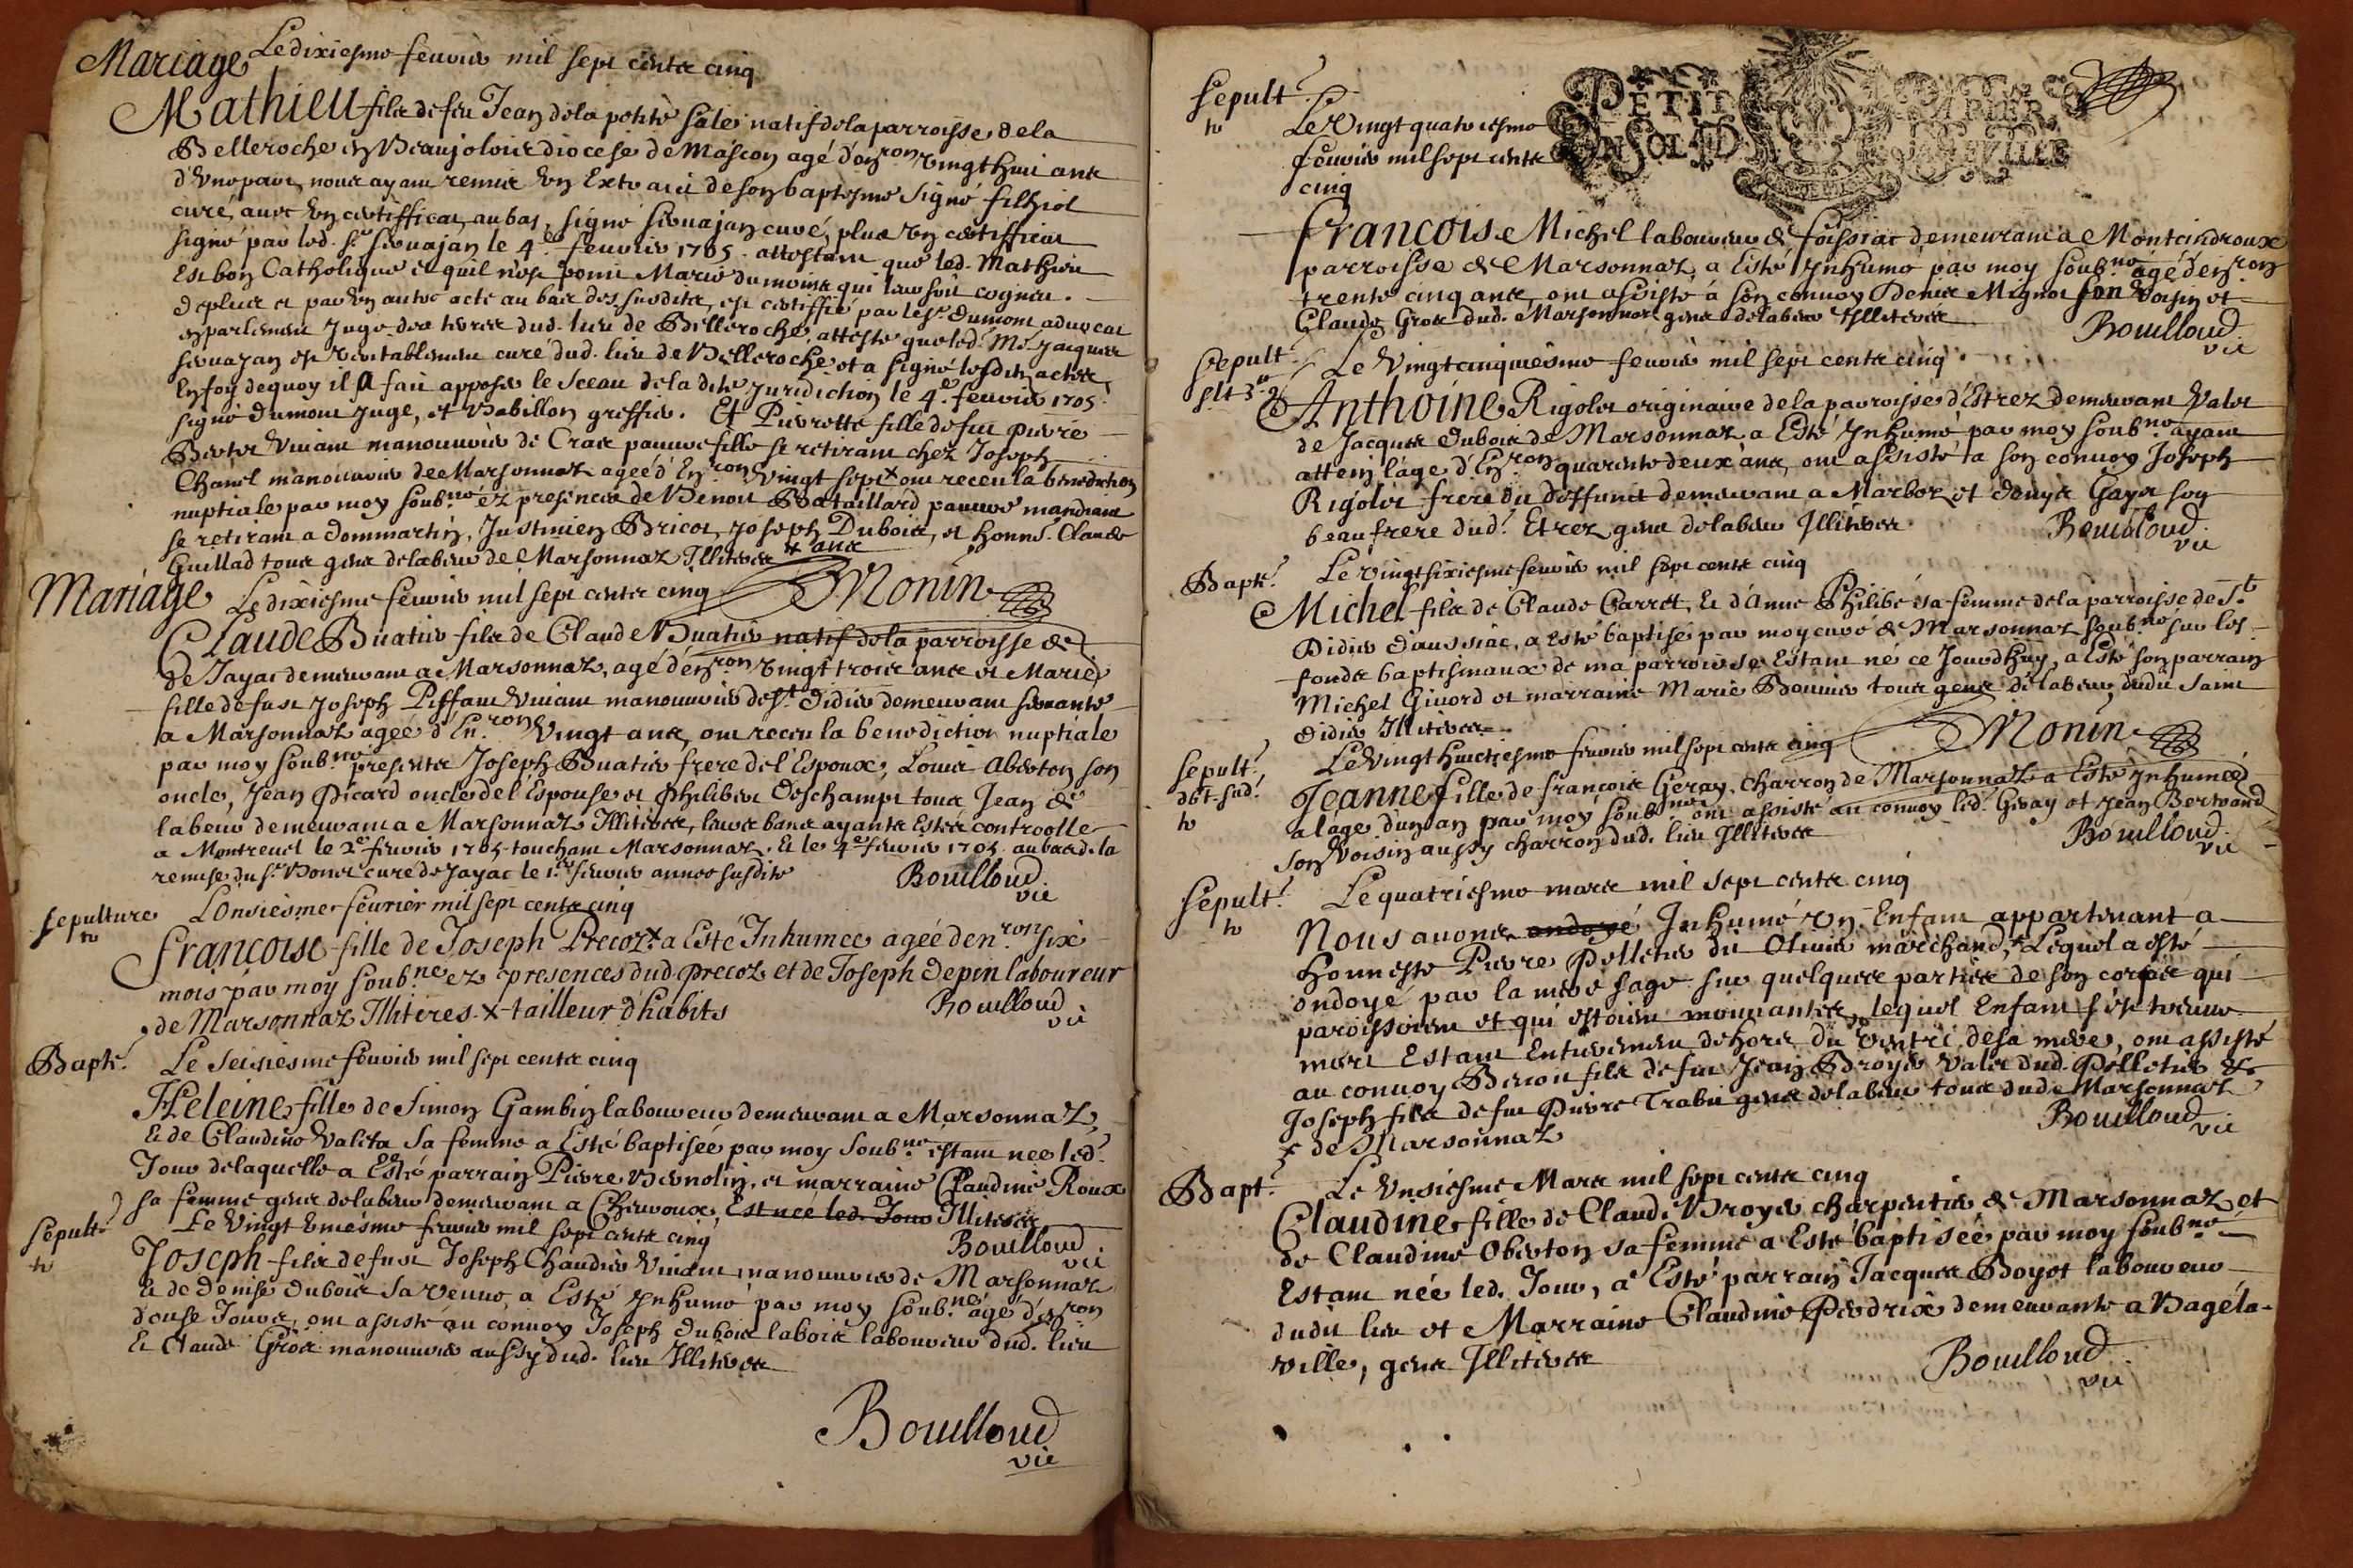 Mariage Le dixiesme feuvrier mil sept cents cinq
Mathieu fils de feu Jean de la petite sale natif de la parroisse de la
Belleroche en Beaujolois diocese de Mascon agé d'en.ron vingt huit ans
d'une part, nous ayant remis un Extraict de son baptesme signé filhiol
curé, avec un certifficat au bas, signé seruajan curé, plus un certifficat
signé par led. sr. seruajan le 4.e feuvrier 1705. attestant que led. Mathieu
Est bon Catholique et qu'il n'est point Marié du moins qui leur soit cogneu.
de plus et par un autre acte au bas des susdits, est certiffié par le sr. Dumont aduocat
en parlement Juge des terres dud. lieu de Belleroche, atteste que led. Mre Jacques
seruajan est veritablement curé dud. lieu de Belleroche et a signé lesdits actes,
En foy dequoy il a fait apposer le sceau de la dite Juridiction le 4.e feuvrier 1705.
signé Dumont Juge, et Babillon greffier. Et Pierrette fille de feu pierre
Berter viuant manouurier de Cras pauure fille se retirant chez Joseph
Chanel manouurier de Marsonnaz agée d'En.ron vingt sept x ont receu la benediction
nuptiale par moy soub.né ez presences de Benoit Bataillard pauure mandiant
se retirant a dommartin, Justinien Bricot, Joseph Dubois, et honns. Claude
Guillad tous gens de labeur de Marsonnaz Illiteres x ans
Monin
Mariage Le dixiesme feuvrier mil sept cents cinq
Claude Buatier fils de Claude Buatier natif de la parroisse de
de Jayat demeurant a Marsonnaz, agé d'en.ron vingt trois ans et Marie
fille de feu Joseph Piffaut viuant manouurier de St. Didier demeurant seruante
a Marsonnaz agée d'En.ron vingt ans, ont receu la benediction nuptiale
par moy soub.né presents Joseph Buatier frere de l'Espoux, Louis Oberton son
oncle, Jean Picard oncle de l'Espouse et Philibert Deschamps tous Jean de
labeur demeurant a Marsonnaz Illiteres, leurs bans ayants Estés controolle
a Montreuel le 2.e feuvrier 1705 touchant Marsonnaz. Et le 4.e feuvrier 1705 au bas de la
remise du sr. Bonet curé de Jayat le 1.er feuvrier année susdite
Bouilloud
vic
Sepulture L'Onsiesme feurier mil sept cents cinq
to
francoise fille de Joseph Precoz x a Esté Inhumée agée d'en.ron six
mois par moy soub.né ez presences dud. precoz et de Joseph Depin laboureur
de Marsonnaz Illiteres. x tailleur d'habits
Bouilloud
vic
Bapte. Le Seisiesme feuvrier mil sept cents cinq
Heleine fille de Simon Gambin laboureur demeurant a Marsonnaz,
Et de Claudine Valeta sa femme a Esté baptisée par moy soub.né estant née led.
Jour de laquelle a Esté parrain Pierre Bernolin, et marraine Claudine Roux
sa femme gens de labeur demeurant a Cheuroux, Est née led. Jour Illiteres
Bouilloud
vic
Sepult. Le vingt uniesme feuvrier mil sept cents cinq
to
Joseph fils de feu Joseph Chaudier viuant manouurier de Marsonnaz
Et de Denise Dubois sa veuue, a Esté Inhumé par moy soub.né agé d'en.ron
douse Jours, ont assisté au conuoy Joseph Dubois labois laboureur dud. lieu
Et Claude Gros manouurier aussy dud. lieu Illiteres
Bouilloud
vic
PETIT PAPIER
UN SOL 4 D
Sepult.
to
Le Vingt quatriesme
feuvrier mil sept cents
cinq
francois Michel laboureur de foissiat demeurant a Montcindroux
parroisse de Marsonnaz, a Esté Inhumé par moy soub.né agé d'en.ron
trente cinq ans, ont assisté a son conuoy Denis Mignot son Voisin et
Claude Gros dud. Marsonnaz gens de labeur Illiteres
Bouilloud
vic
Sepult. Le Vingt cinquiesme feuvrier mil sept cents cinq
Anthoine Rigolet originaire de la parroisse d'Estrez demeurant Valet
de Jacques Dubois de Marsonnaz a Esté Inhumé par moy soub.né ayant
attein l'age d'En.ron quarente deux ans, ont assisté a son conuoy Joseph
Rigolet frere du deffunct demeurant a Marboz et Denys Gayet son
beaufrere dud. Etrez gens de labeur Illiteres.
Bouilloud
vic
Bapte. Le Vingt sixiesme feuvrier mil sept cents cinq
Michel fils de Claude Carret, Et d'Anne Philibé sa femme de la parroisse de St.
Didier d'aussiac, a esté baptisé par moy curé de Marsonnaz soub.né sur les
fonds baptismaux de ma parroisse Estant né ce Jourdhuy, a Esté son parrain
Michel Giuord et marraine Marie Bouuier tous gens de labeur, dudit saint
Didier Illiteres
Monin
Sepult. Le Vingt huictiesme feuvrier mil sept cents cinq
to
Jeanne fille de francois Geray, Charron de Marsonnaz a Esté Inhumée
a l'age d'un an par moy soub.né ont assisté au conuoy led. Giray et Jean Bertrand
son Voisin aussy charron dud. lieu Illiteres
Bouilloud
vic
Sepult. Le quatriesme mars mil sept cents cinq
to
Nous auons ondoyé Inhumé un Enfant appartenant a
honneste Pierre Pelletier du Oliuier marchand, x Lequel a esté
ondoyé par la mere sage sur quelques parties de son corps qui
paroissoient et qui estoient mouuantes, lequel Enfant s'est trouué
mort Estant Entierement dehors du ventre de sa mere, ont assisté
au conuoy Benoit fils de feu Jean Broyer valet dud. Pelletier et
Joseph fils de feu Pierre Trabu gens de labeur tous dudit Marsonnaz
x de Marsonnaz
Bouilloud
vic
Bapt. Le Unsiesme Mars mil sept cents cinq
Claudine fille de Claude Broyer charpentier de Marsonnaz et
de Claudine Oberton sa femme a Esté baptisée par moy soub.né
Estant née led. Jour, a Esté parrain Jacques Boyet laboureur
dudit lieu et Marraine Claudine Perdrix demeurante a Bagé la-
ville, gens Illiteres
Bouilloud
vic